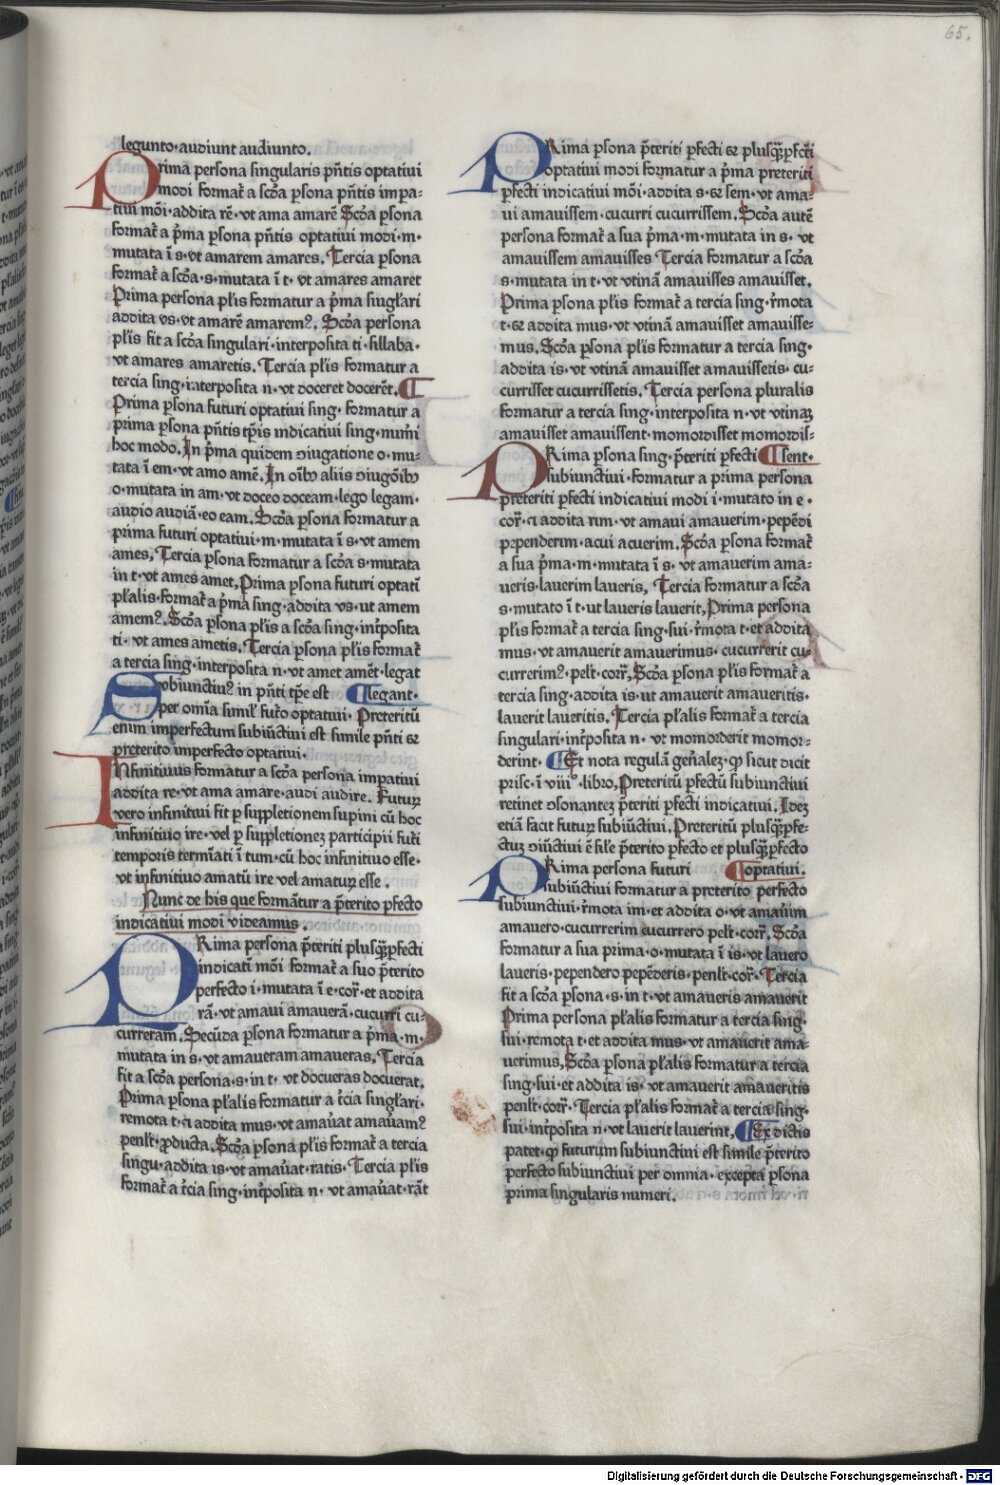 65.
legunto·audiunt audiunto.
Prima persona singularis pñtis optatiui
modi format᷑ a scḋa ꝑsona pñtis impa⸗
tiui mõi·addita rẽ·vt ama amarẽ Scḋa ꝑsona
format᷑ a p̃ma ꝑsona pñtis optatiui modi·m·
mutata ĩ s·vt amarem amares. Tercia ꝑsona
format᷑ a scḋa·s·mutata ĩ t·vt amares amaret
Prima persona pl̃is formatur a p̃ma singl̃ari
addita vs·vt amarẽ amaremꝰ. Scḋa persona
pl̃is fit a scḋa singulari·interposita ti·sillaba·
vt amares amaretis. Tercia pl̃is formatur a
tercia sing·interposita n·vt doceret docerẽt. ¶
Prima ꝑsona futuri optatiui sing·formatur a
prima ꝑsona pñtis tꝑis indicatiui sing·num̃i
hoc modo. In p̃ma quidem ɔiugatione o·mu⸗
tata ĩ em·vt amo amẽ. In oĩbꝰ aliis ɔiugõibꝰ
o·mutata in am·vt doceo doceam·lego legam·
audio audiã·eo eam. Scḋa ꝑsona formatur a
prima futuri optatiui·m·mutata ĩ s·vt amem
ames. Tercia ꝑsona formatur a scḋa s·mutata
in t·vt ames amet. Prima ꝑsona futuri optati
pl̃alis·format᷑ a p̃ma sing·addita vs·ut amem
amemꝰ. Scḋa ꝑsona pl̃is a scḋa sing·int̃posita
ti·vt ames ametis. Tercia ꝑsona pl̃is format᷑
a tercia sing·interposita n·vt amet amẽt·legat
Subiunctiuꝰ in pñti tꝑe est ¶legant·
per om̃ia simil᷑ fut̃o optatiui· Preteritũ
enim imperfectum subiũctiui est simile pñti ⁊
preterito imperfecto optatiui·
Infinitiuus formatur a scḋa persona impatiui
addita re·vt ama amare·audi audire. Futurꝫ
vero infinitiui fit ꝑ suppletionem supini cũ hoc
infinitiuo ire·vel ꝑ suppletionez participii fut̃i
temporis term̃iati ĩ tum·cũ hoc infinitiuo esse·
vt infinitiuo amatũ ire vel amaturꝫ esse.
Nunc de his que formãtur a p̃terito ꝑfecto
indicatiui modi videamus.
PRima persona p̃teriti plusꝙ̃ꝑfecti
indicati mõi format᷑ a suo p̃terito
perfecto i·mutata ĩ e·cor̃·et addita
rã·vt amaui amauerã·cucurri cu⸗
curreram. Secũda ꝑsona formatur a p̃ma·m·
mutata in s·vt amaueram amaueras. Tercia
fit a scḋa persona·s·in t·vt docueras docuerat.
Prima ꝑsona pl̃alis formatur a t̃cia singl̃ari·
remota t·⁊ addita mus·vt amau̇at amau̇amꝰ
penl̃t·ꝓducta. Scḋa ꝑsona pl̃is format᷑ a tercia
singu·addita is·vt amau̇at·ratis· Tercia pl̃is
format᷑ a t̃cia sing·int̃posita n·vt amau̇at·rãt
PRima ꝑsona p̃teriti ꝑfecti ⁊ plusꝙ̃ꝑfcti
optatiui modi formatur a p̃ma preteriti
ꝑfecti indicatiui mõi·addita s·⁊ sem·vt ama⸗
ui amauissem·cucurri cucurrissem. Scḋa autẽ
persona format᷑ a sua p̃ma·m·mutata in s·vt
amauissem amauisses Tercia formatur a scḋa
s·mutata in t·vt vtinã amauisses amauisset.
Prima ꝑsona pl̃is format᷑ a tercia sing·r̃mota
t·⁊ addita mus·vt vtinã amauisset amauisse⸗
mus. Scḋa ꝑsona pl̃is formatur a tercia sing·
addita is·vt vtinã amauisset amauissetis·cu⸗
currisset cucurrissetis. Tercia persona pluralis
formatur a tercia sing·interposita n·vt vtinaꝫ
amauisset amauissent·momordisset momordis⸗
PRima ꝑsona sing·p̃teriti ꝑfecti ¶sent·
subiunctiui·formatur a prima persona
preteriti ꝑfecti indicatiui modi i·mutato in e·
cor̃·⁊ addita rim·vt amaui amauerim·pepẽdi
pependerim·acui acuerim. Scḋa ꝑsona format᷑
a sua p̃ma·m·mutata ĩ s·vt amauerim ama⸗
ueris·lauerim laueris. Tercia formatur a scḋa
s·mutato ĩ t·ut laueris lauerit. Prima persona
pl̃is format᷑ a tercia sing·sui·r̃mota t·et addita
mus·vt amauerit amauerimus·cucurrerit cu⸗
currerimꝰ·pel̃t·cor̃. Scḋa ꝑsona pl̃is format᷑ a
tercia sing·addita is·ut amauerit amaueritis·
lauerit laueritis. Tercia pl̃alis format᷑ a tercia
singulari·int̃posita n·vt momorderit momor⸗
derint·¶Et nota regulã geñalez·ꝙ sicut dicit
prisc·ĩ viiiᵒ·libro. Preteritũ ꝑfectũ subiunctiui
retinet ɔsonantez p̃teriti ꝑfecti indicatiui. Idez
etiã facit futurꝫ subiũctiui. Preteritũ plusꝙ̃ꝑfe⸗
ctuꝫ ɔiũctiui ẽ sil̃e p̃terito ꝑfecto et plusꝙ̃ꝑfecto
PRima persona futuri ¶optatiui.
subiũctiui formatur a preterito perfecto
subiunctiui·r̃mota im·et addita o·vt amau̇im
amauero·cucurrerim cucurrero pel̃t·cor̃. Scḋa
formatur a sua prima·o·mutata ĩ is·vt lauero
laueris·pependero pepẽderis·penl̃t·cor̃·Tercia
fit a scḋa ꝑsona·s·in t·vt amaueris amauerit
Prima ꝑsona pl̃alis formatur a tercia sing·
sui·remota t·et addita mus·vt amauerit ama⸗
uerimus. Scḋa ꝑsona pl̃alis formatur a tercia
sing·sui·et addita is·vt amauerit amaueritis
penl̃t·cor̃·Tercia pl̃alis format᷑ a tercia sing·
sui·int̃posita n·vt lauerit lauerint. ¶Ex dictis
patet·ꝙ futurum subiunctiui est simile p̃terito
perfecto subiunctiui per omnia·excepta ꝑsona
prima singularis numeri.
Digitalisierung gefördert durch die Deutsche Forschungsgemeinschaft - DFG